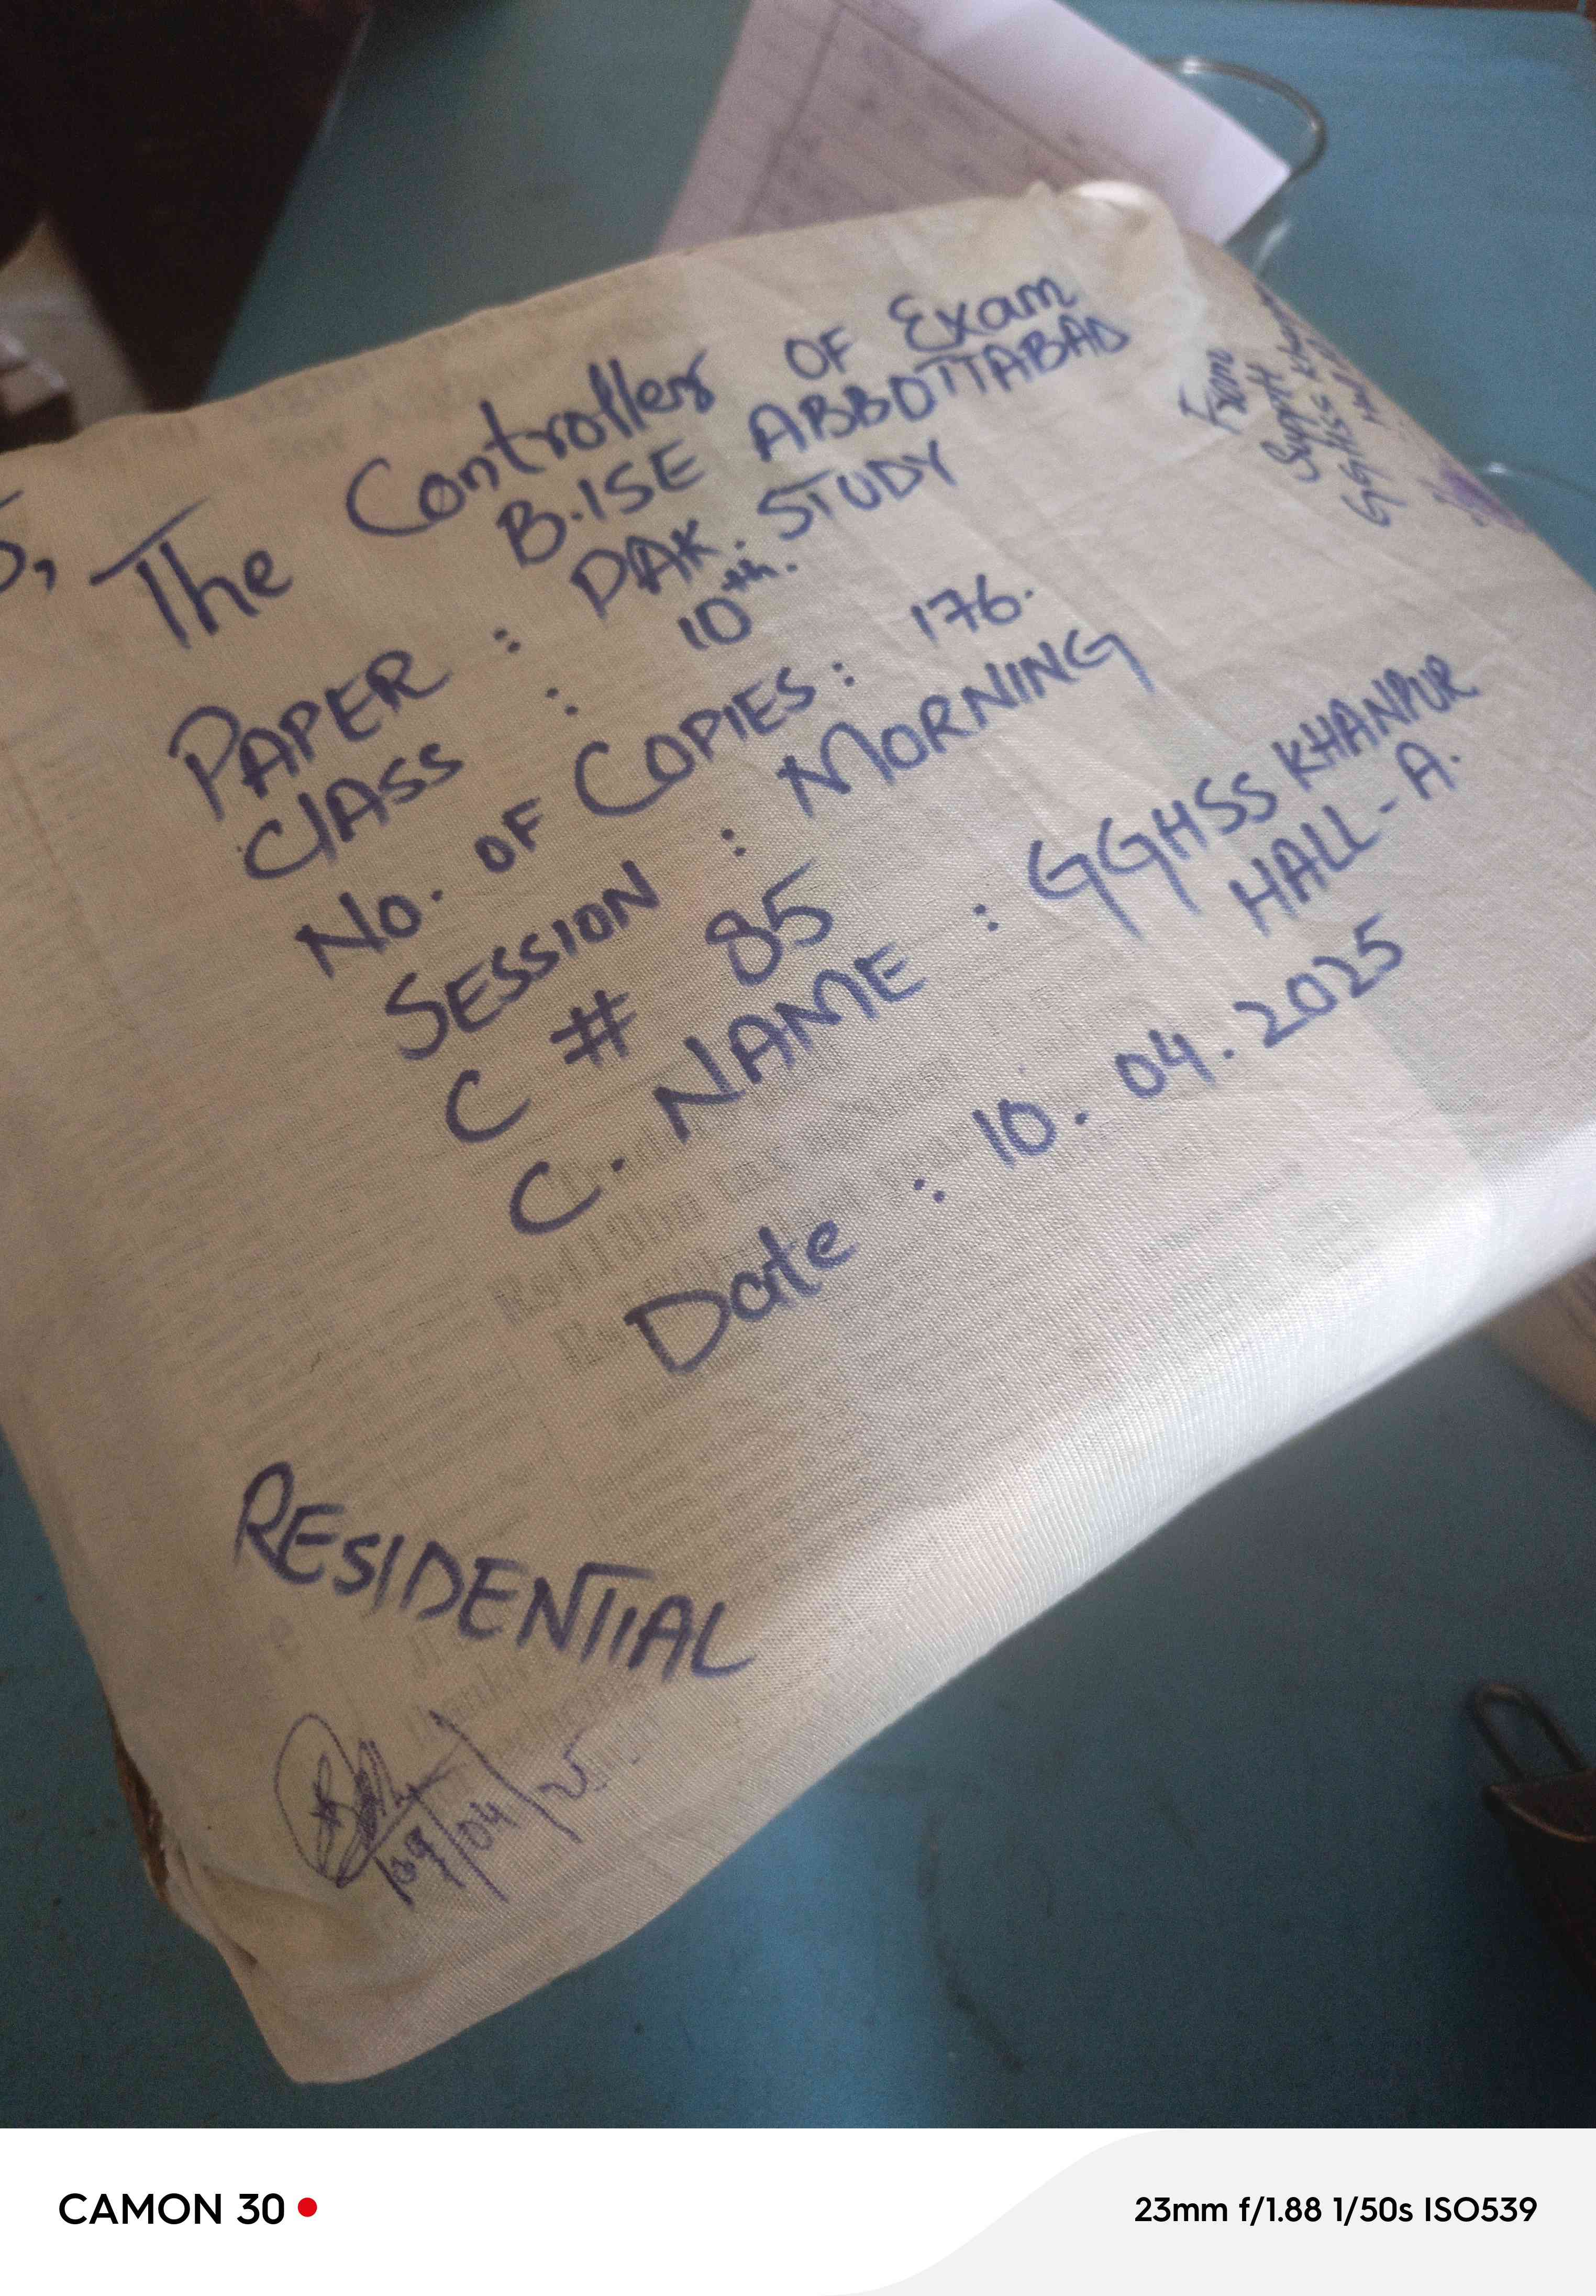 The Controller OF Exam
B.ISE ABBOTTABAD
PAPER : PAK. STUDY
CLASS : 10th.
No. OF COPIES: 176.
SESSION : MORNING
C # 85
C. NAME : GGHSS KHANPUR
HALL-A.
Date : 10. 04. 2025
RESIDENTIAL
09/04/25
From
Suppdt
GGHSS
CAMON 30
23mm f/1.88 1/50s ISO539